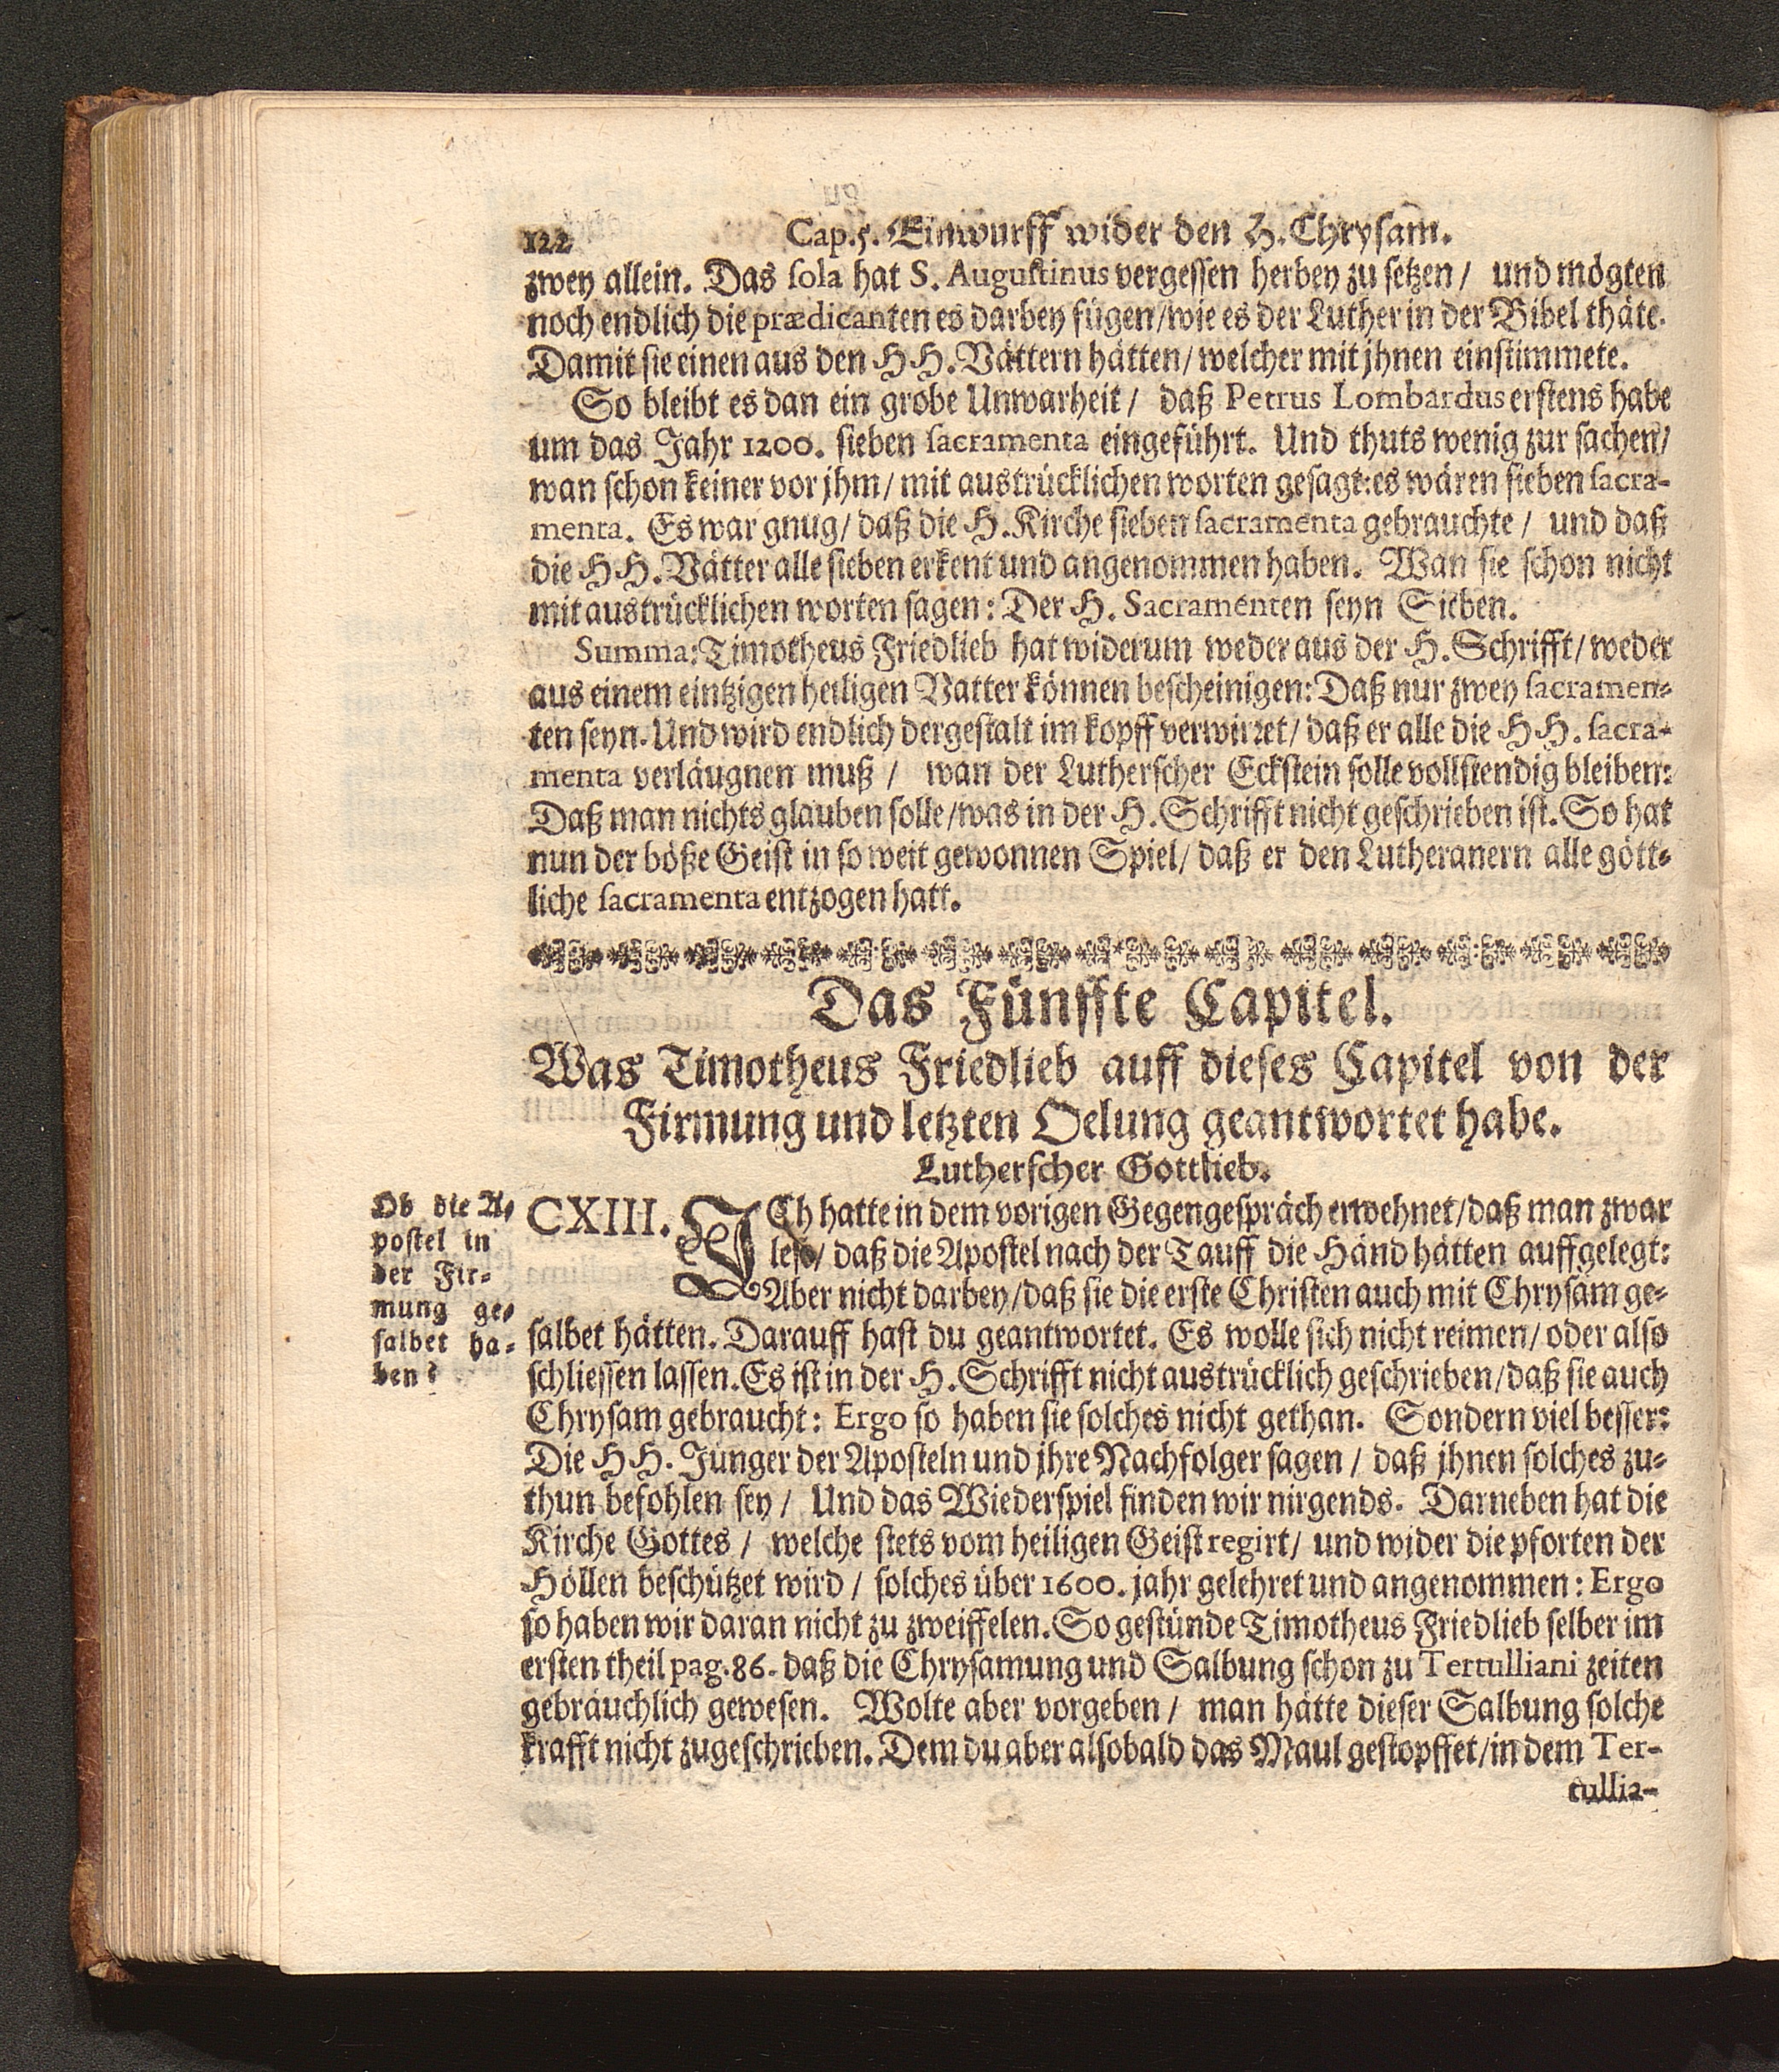 122 Cap. 5. Einwurff wider den H. Chrysam.
zwey allein. Das sola hat S. Augustinus vergessen herbey zu setzen / und mögten
noch endlich die prædicanten es darbey fügen / wie es der Luther in der Bibel thäte.
Damit sie einen aus den HH. Vättern hätten / welcher mit jhnen einstimmete.
So bleibt es dan ein grobe Unwarheit / daß Petrus Lombardus erstens habe
um das Jahr 1200. sieben sacramenta eingeführt. Und thuts wenig zur sachen /
wan schon keiner vor jhm / mit austrücklichen worten gesagt: es wären sieben sacra-
menta. Es war gnug / daß die H. Kirche sieben sacramenta gebrauchte / und daß
die HH. Vätter alle sieben erkent und angenommen haben. Wan sie schon nicht
mit austrücklichen worten sagen: Der H. Sacramenten seyn Sieben.
Summa: Timotheus Friedlieb hat widerum weder aus der H. Schrifft / weder
aus einem eintzigen heiligen Vatter können bescheinigen: Daß nur zwey sacramen-
ten seyn. Und wird endlich dergestalt im kopff verwirret / daß er alle die HH. sacra-
menta verläugnen muß / wan der Lutherscher Eckstein solle vollstendig bleiben:
Daß man nichts glauben solle / was in der H. Schrifft nicht geschrieben ist. So hat
nun der böße Geist in so weit gewonnen Spiel / daß er den Lutheranern alle gött-
liche sacramenta entzogen hatt.
Das Fünffte Capitel.
Was Timotheus Friedlieb auff dieses Capitel von der
Firmung und letzten Oelung geantwortet habe.
Lutherscher Gottlieb.
Ob die A-
postel in
der Fir-
mung ge-
salbet ha-
ben?
CXIII. ICh hatte in dem vorigen Gegengespräch erwehnet / daß man zwar
lese / daß die Apostel nach der Tauff die Händ hätten auffgelegt:
Aber nicht darbey / daß sie die erste Christen auch mit Chrysam ge-
salbet hätten. Darauff hast du geantwortet. Es wolle sich nicht reimen / oder also
schliessen lassen. Es ist in der H. Schrifft nicht austrücklich geschrieben / daß sie auch
Chrysam gebraucht: Ergo so haben sie solches nicht gethan. Sondern viel besser:
Die HH. Jünger der Aposteln und jhre Nachfolger sagen / daß jhnen solches zu-
thun befohlen sey / Und das Wiederspiel finden wir nirgends. Darneben hat die
Kirche Gottes / welche stets vom heiligen Geist regirt / und wider die pforten der
Höllen beschützet wird / solches über 1600. jahr gelehret und angenommen: Ergo
so haben wir daran nicht zu zweiffelen. So gestünde Timotheus Friedlieb selber im
ersten theil pag. 86. daß die Chrysamung und Salbung schon zu Tertulliani zeiten
gebräuchlich gewesen. Wolte aber vorgeben / man hätte dieser Salbung solche
krafft nicht zugeschrieben. Dem du aber alsobald das Maul gestopffet / in dem Ter-
tullia-